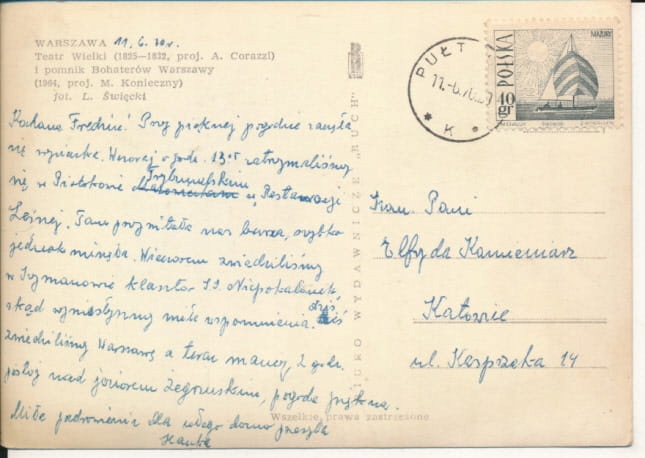 WARSZAWA 11.6.70r.
Teatr Wielki (1825—1832, proj. A. Corazzi)
i pomnik Bohaterów Warszawy
(1964, proj. M. Konieczny)
fot. L. Święcki
Kochana Fredziu! Przy pięknej pogodzie zaczęła
się wycieczka. Wczoraj o godz. 13 zatrzymaliśmy
się w Piotrkowie Trybunalskim w Restauracji
Leśnej. Tam przywitała nas burza, szybko
jednak minęła. Wieczorem zwiedziliśmy
w Szymanowie klasztor SS. Niepokalanek
skąd wynieśliśmy miłe wspomnienia. Dziś
zwiedziliśmy Warszawę a teraz mamy 2 godz.
postój nad jeziorem Zegrzyńskim, pogoda piękna.
Miłe pozdrowienia dla całego domu przesyła
Hanka
BIURO WYDAWNICZE „RUCH"
Wszelkie prawa zastrzeżone
PUŁT
11.-6.70.
* K *
POLSKA
MAZURY
40 gr
Szan. Pani
Elfryda Kamieniarz
Katowice
ul. Kasprzaka 14